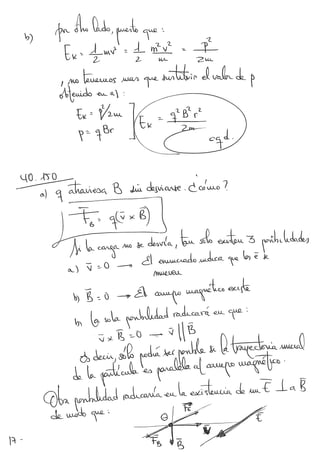 b) por otro lado, puesto que:
Ek = 1/2 mv² = 1/2 m²v²/m = p²/2m
, no tenemos más que sustituir el valor de p
obtenido en a):
Ek = p²/2m
p = qBr
Ek = q²B²r²/2m
cqd.
40.150
a) q atraviesa B sin desviarse. ¿cómo?
F⃗B = q(v⃗ x B⃗)
Si la carga no se desvía, tan sólo existen 3 posibilidades
a) v⃗ = 0 → El enunciado indica que los e⁻ se
mueven
b) B⃗ = 0 → El campo magnético existe
b) La sola posibilidad radicará en que:
v⃗ x B⃗ = 0 → v⃗ || B⃗
Es decir, sólo podrá ser posible si la trayectoria inicial
de la partícula es paralela al campo magnético.
Otra posibilidad radicaría en la existencia de un E⃗ ⊥ a B⃗
de modo que:
F⃗e
E⃗
F⃗B
B⃗
17-